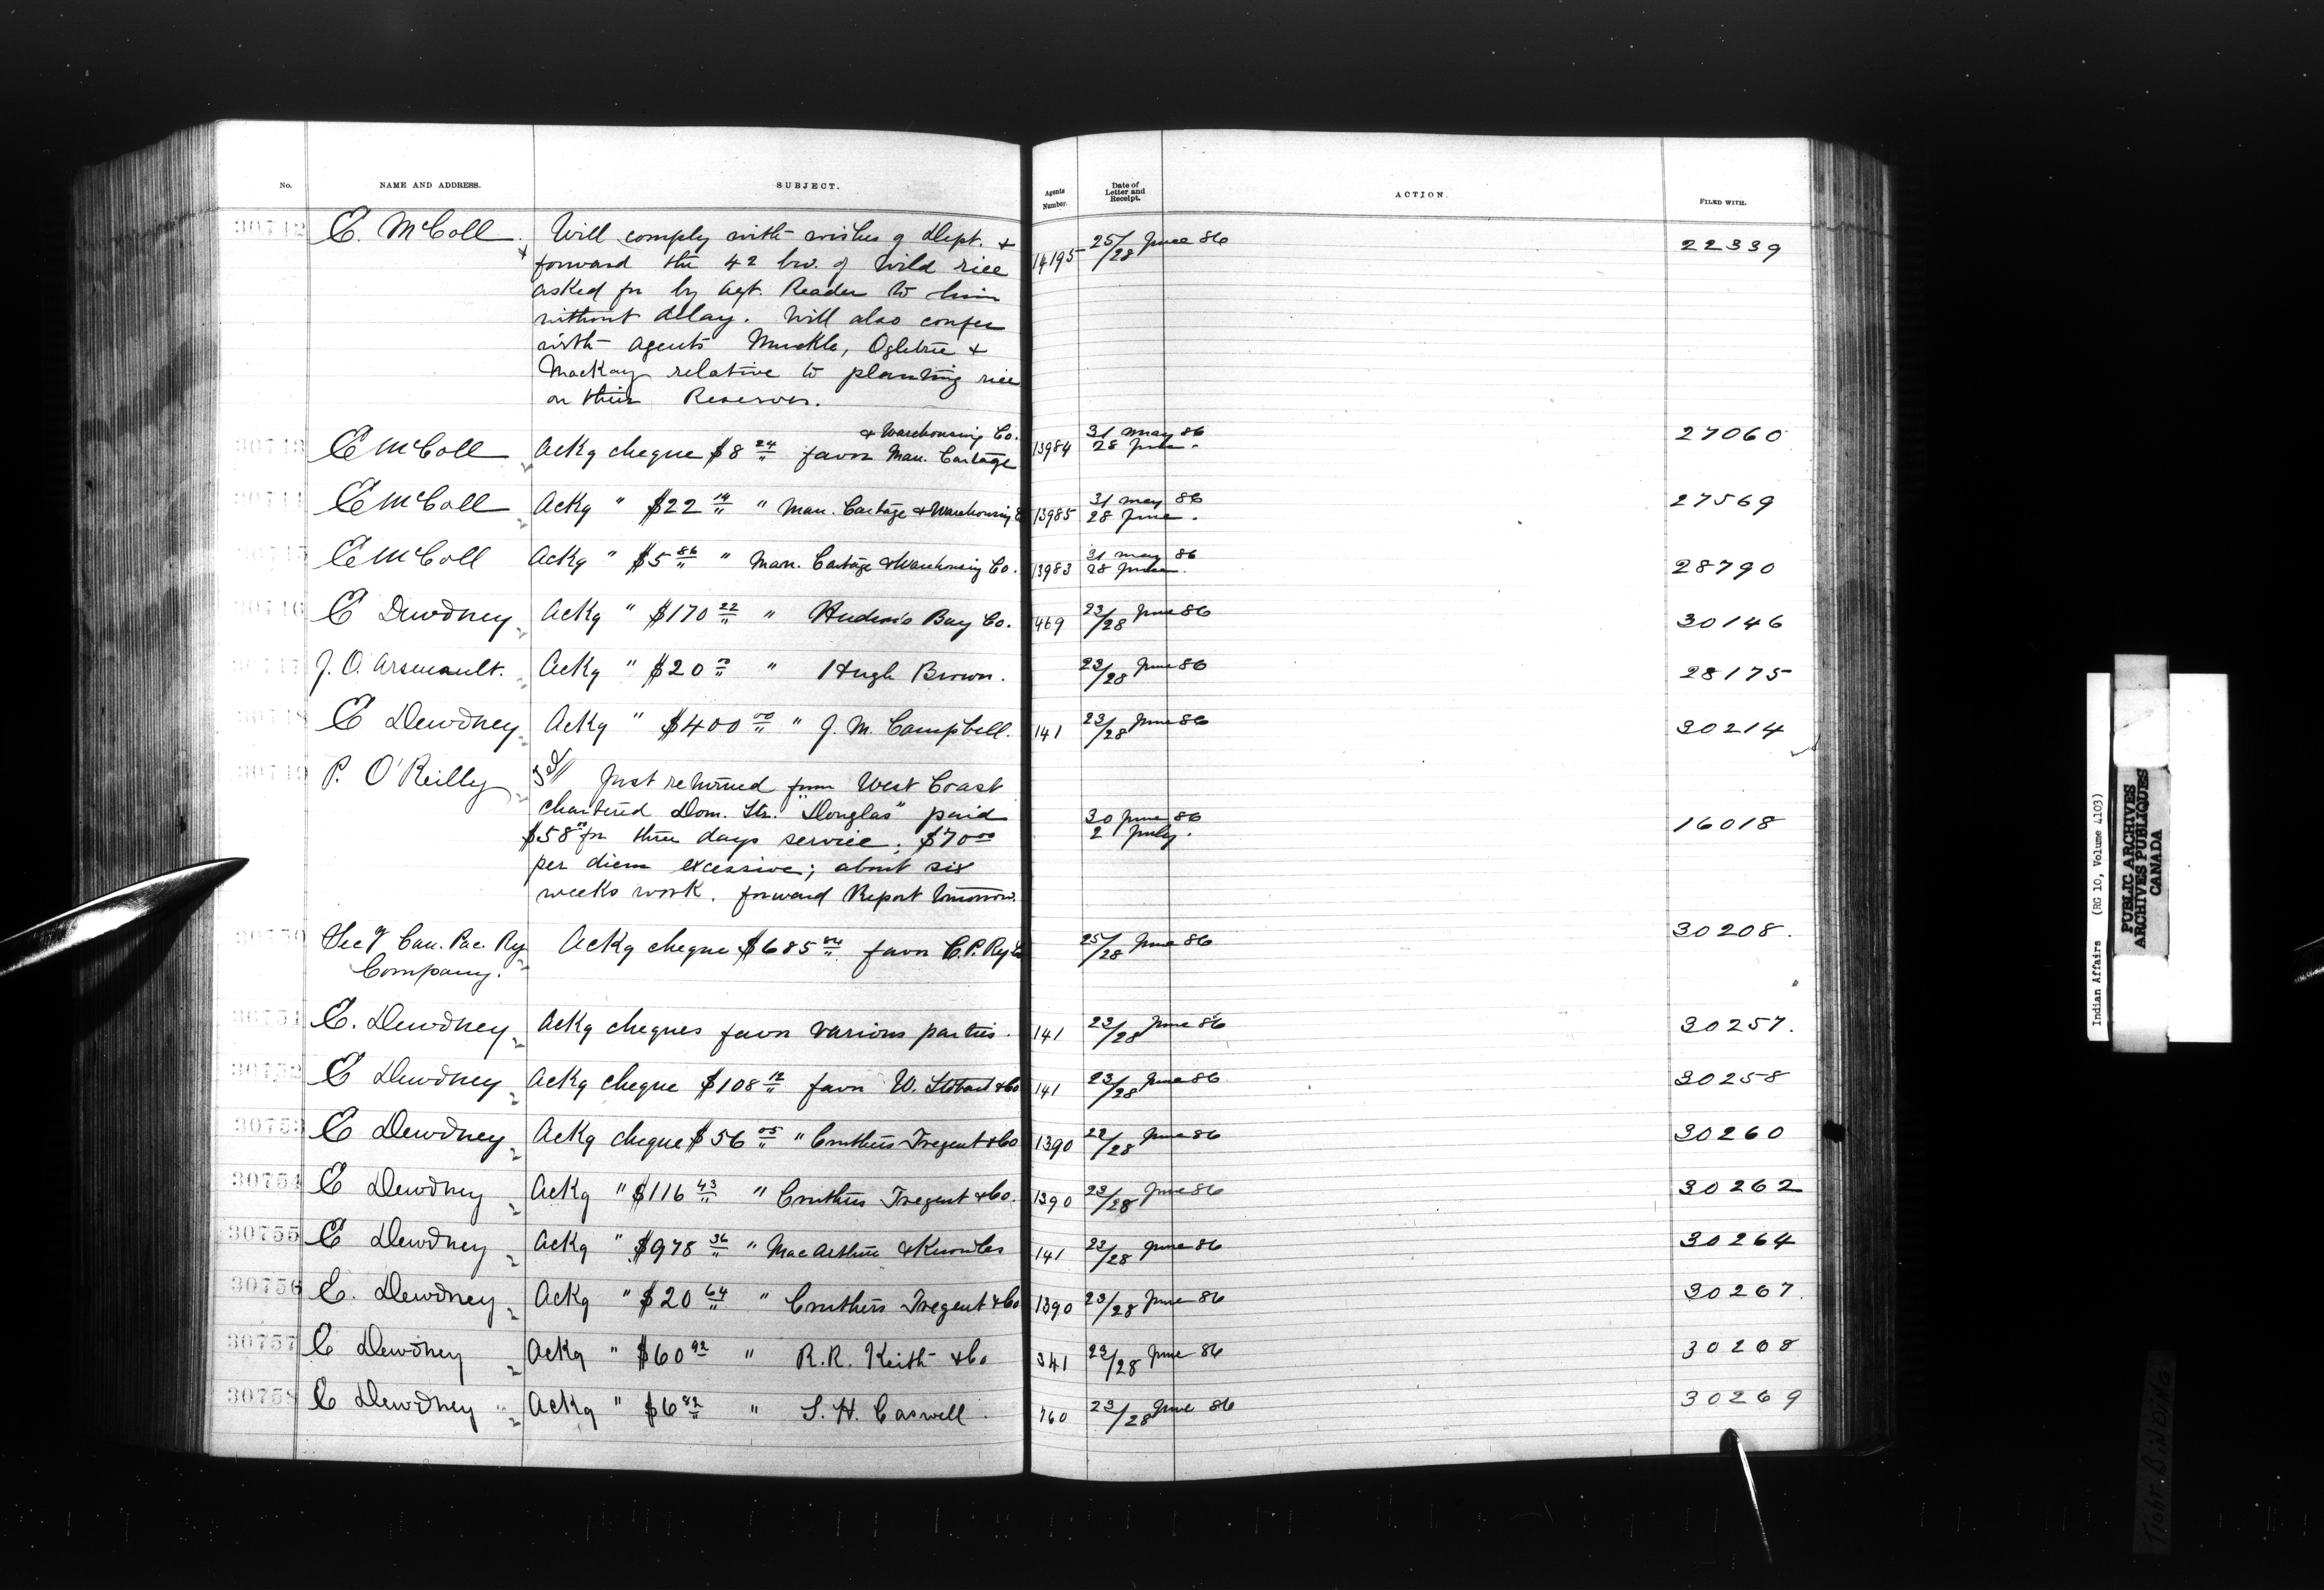 No. NAME AND ADDRESS. SUBJECT. Agents Number. Date of Letter and Receipt. ACTION. FILED WITH.
30742 E. McColl Will comply with wishes of Dept. + 14195 25/28 June 86 22339
forward the 42 bu. of wild rice
asked for by Agt. Reader to him
without delay. Will also confer
with Agents Muckle, Ogletree +
MacKay relative to planting rice
on their Reserves.
& Warehousing Co.
30743 E McColl Ackg cheque $8 24 favor Man. Cartage 13984 31 May 86 28 June. 27060
30744 E McColl Ackg " $22 14 " Man. Cartage & Warehousing Co 13985 31 May 86 28 June. 27569
30745 E McColl Ackg " $5 86 " Man. Cartage & Warehousing Co. 13983 31 May 86 28 June. 28790
30746 E Dewdney Ackg " $170 22 " Hudson's Bay Co. 469 23/28 June 86 30146
30747 J. O. Arsenault. Ackg " $20 " Hugh Brown. 23/28 June 86 28175
30748 E Dewdney Ackg " $400 00 " J. M. Campbell. 141 23/28 June 86 30214
30749 P. O'Reilly Just returned from West Coast
chartered Dom. Str. "Douglas" paid 30 June 86
$58 for three days service. $70 00 2 July. 16018
per diem excessive; about six
weeks work. forward Report tomorrow.
30750 Secy Can. Pac. Ry Ackg cheque $685 favor C.P. Ry Co 25/28 June 86 30208.
Company.
30751 E. Dewdney Ackg cheques favor various parties. 141 23/28 June 86 30257.
30752 E Dewdney Ackg cheque $108 12 favor W. Stobart & Co 141 23/28 June 86 30258
30753 E Dewdney Ackg cheque $56 05 " Cruthers Tregent & Co 1390 22/28 June 86 30260
30754 E Dewdney Ackg " $116 43 " Cruthers Tregent & Co. 1390 23/28 June 86 30262
30755 E Dewdney Ackg " $978 36 " MacArthur & Knowles 141 23/28 June 86 30264
30756 E. Dewdney Ackg " $20 64 " Cruthers Tregent & Co 1390 23/28 June 86 30267.
30757 E Dewdney Ackg " $60 92 " R. R. Keith & Co 341 23/28 June 86 30268
30758 E Dewdney Ackg " $6 82 " S. H. Caswell 760 23/28 June 86 30269
Indian Affairs (RG 10, Volume 4103)
PUBLIC ARCHIVES
ARCHIVES PUBLIQUES
CANADA
Tight Binding